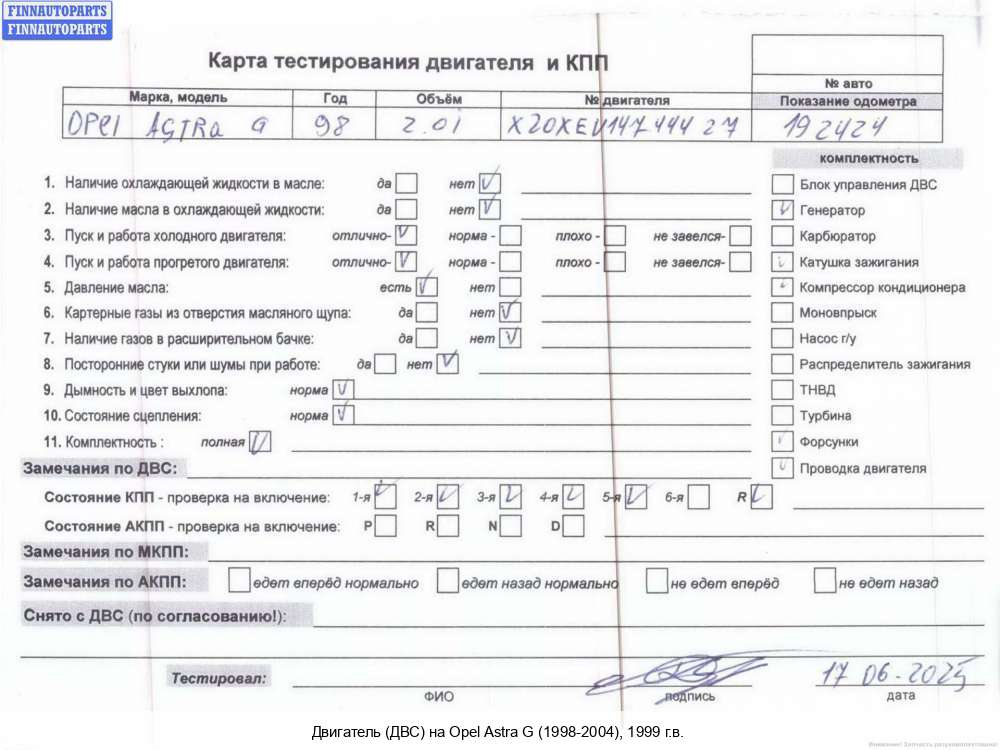 FINNAUTOPARTS
FINNAUTOPARTS
Карта тестирования двигателя и КПП
№ авто
Марка, модель Год Объём № двигателя Показание одометра
Opel Astra G 98 2.0i X20XEV14744427 192424
комплектность
1. Наличие охлаждающей жидкости в масле: да нет V Блок управления ДВС
2. Наличие масла в охлаждающей жидкости: да нет V V Генератор
3. Пуск и работа холодного двигателя: отлично- V норма - плохо - не завелся- Карбюратор
4. Пуск и работа прогретого двигателя: отлично- V норма - плохо - не завелся- V Катушка зажигания
5. Давление масла: есть V нет V Компрессор кондиционера
6. Картерные газы из отверстия масляного щупа: да нет V Моновпрыск
7. Наличие газов в расширительном бачке: да нет V Насос г/у
8. Посторонние стуки или шумы при работе: да нет V Распределитель зажигания
9. Дымность и цвет выхлопа: норма V ТНВД
10. Состояние сцепления: норма V Турбина
11. Комплектность : полная V V Форсунки
Замечания по ДВС: V Проводка двигателя
Состояние КПП - проверка на включение: 1-я V 2-я V 3-я V 4-я V 5-я V 6-я R V
Состояние АКПП - проверка на включение: P R N D
Замечания по МКПП:
Замечания по АКПП: едет вперёд нормально едет назад нормально не едет вперёд не едет назад
Снято с ДВС (по согласованию!):
Тестировал: 17 06. 2025
ФИО подпись дата
Двигатель (ДВС) на Opel Astra G (1998-2004), 1999 г.в.